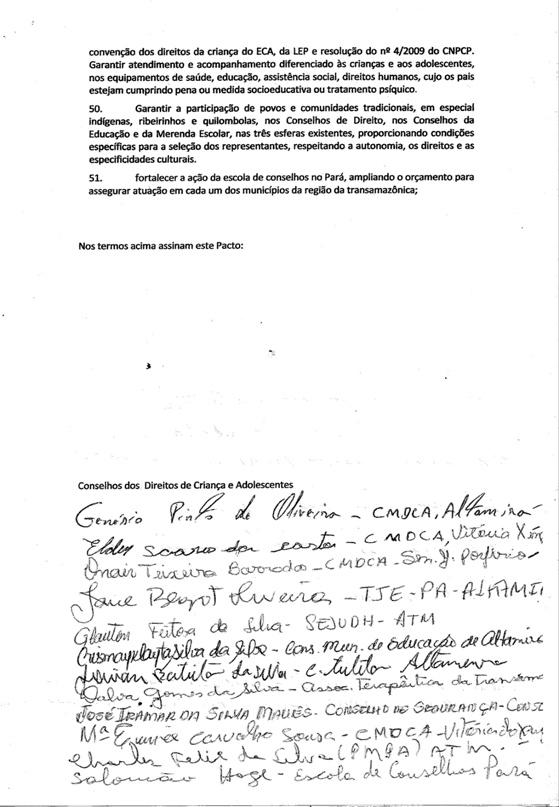 convenção dos direitos da criança do ECA, da LEP e resolução do nº 4/2009 do CNPCP.
Garantir atendimento e acompanhamento diferenciado às crianças e aos adolescentes,
nos equipamentos de saúde, educação, assistência social, direitos humanos, cujo os pais
estejam cumprindo pena ou medida socioeducativa ou tratamento psíquico.
50. Garantir a participação de povos e comunidades tradicionais, em especial
indígenas, ribeirinhos e quilombolas, nos Conselhos de Direito, nos Conselhos da
Educação e da Merenda Escolar, nas três esferas existentes, proporcionando condições
específicas para a seleção dos representantes, respeitando a autonomia, os direitos e as
especificidades culturais.
51. fortalecer a ação da escola de conselhos no Pará, ampliando o orçamento para
assegurar atuação em cada um dos municípios da região da transamazônica;
Nos termos acima assinam este Pacto:
Conselhos dos Direitos de Criança e Adolescentes
Genésio Pinto de Oliveira - CMDCA, Altamira
Soares - CMDCA, Vitória
Teixeira - CMDCA - Sen. J. Porfírio
Oliveira - TJE - PA -
Feitosa da Silva - SEJUDH - ATM
Silva da Silva - Cons. Mun. de Educação de Altamira
da Silva - C. Tutelar
Dalva Gomes da Silva - Assoc. Terapêutica da
JOSÉ IRAMAR DA SILVA MAUÉS - CONSELHO DE SEGURANÇA -
Mª Carvalho Sousa - CMDCA - Vitória do
Charles Felix da Silva (PMPA) ATM -
Salomão Hage - Escola de Conselhos Pará